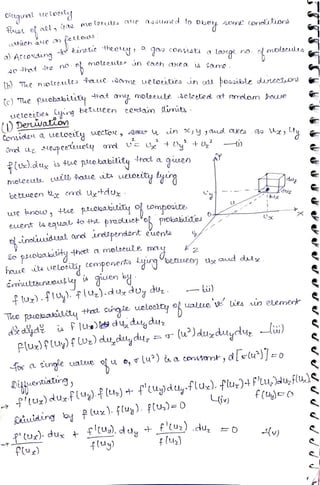 Original velocity
First of all, gas molecules are assumed to obey some conditions
which are as follows:
a) According to kinetic theory, a gas consists a large no. of molecules
so that the no of molecules in each area is same.
(b) The molecules have same velocities in all possible directions
(c) The probability that any molecule selected at random have
velocities lying between certain limits.
(1) Derivation
Consider a velocity vector, u in x, y, and axes as ux, uy
and uz respectively and u² = ux² + uy² + uz² —(i)
f(ux).dux is the probability that a given
molecule will have its velocity lying
between ux and ux+dux.
we know, the probability of composite
event is equal to the product of probabilities
of individual and independent events
So probability that a molecule may
have its velocity components lying between ux and dux
simultaneously is given by.
f(ux).f(uy).f(uz).dux duy duz —(ii)
The probability that single velocity of value 'u' lies in element
is dux duy duz
f(ux)f(uy)f(uz) dux duy duz = σ(u²) dux duy duz —(iii)
for a single value of u, σ(u²) is a constant, d[σ(u²)] = 0
Differentiating,
→ f'(ux)dux.f(uy).f(uz) + f'(uy)duy.f(ux).f(uz) + f'(uz)duz f(ux)
f(uy) = 0
(iv)
Dividing by f(ux).f(uy).f(uz) = 0
→ f'(ux).dux/f(ux) + f'(uy).duy/f(uy) + f'(uz).duz/f(uz) = 0 —(v)